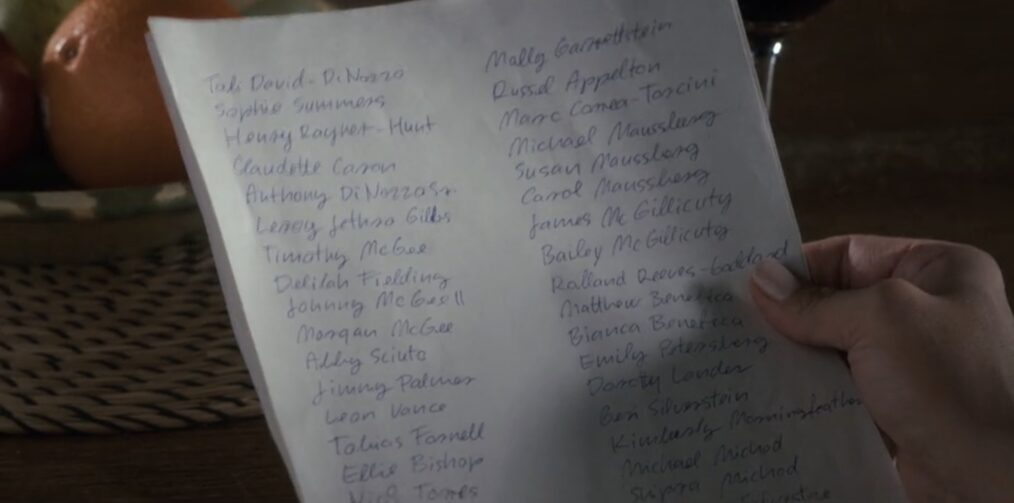 Tali David-DiNozzo
Sophie Summers
Henry Rayner-Hunt
Claudette Caron
Anthony DiNozzo Sr.
Leroy Jethro Gibbs
Timothy McGee
Delilah Fielding
Johnny McGee II
Morgan McGee
Abby Sciuto
Jimmy Palmer
Leon Vance
Tobias Fornell
Ellie Bishop
Nick Torres
Mally
Russel Appelton
Marc Correa-Torcini
Michael Maussberg
Susan Maussberg
Carrol Maussberg
James McGillicuty
Bailey McGillicuty
Ralland Reeves-Goddard
Matthew Benerica
Bianca Benerica
Emily Petersberg
Dorothy Lander
Ben Silverstein
Kimberly Morningfeather
Michael Michod
Shipra Michod